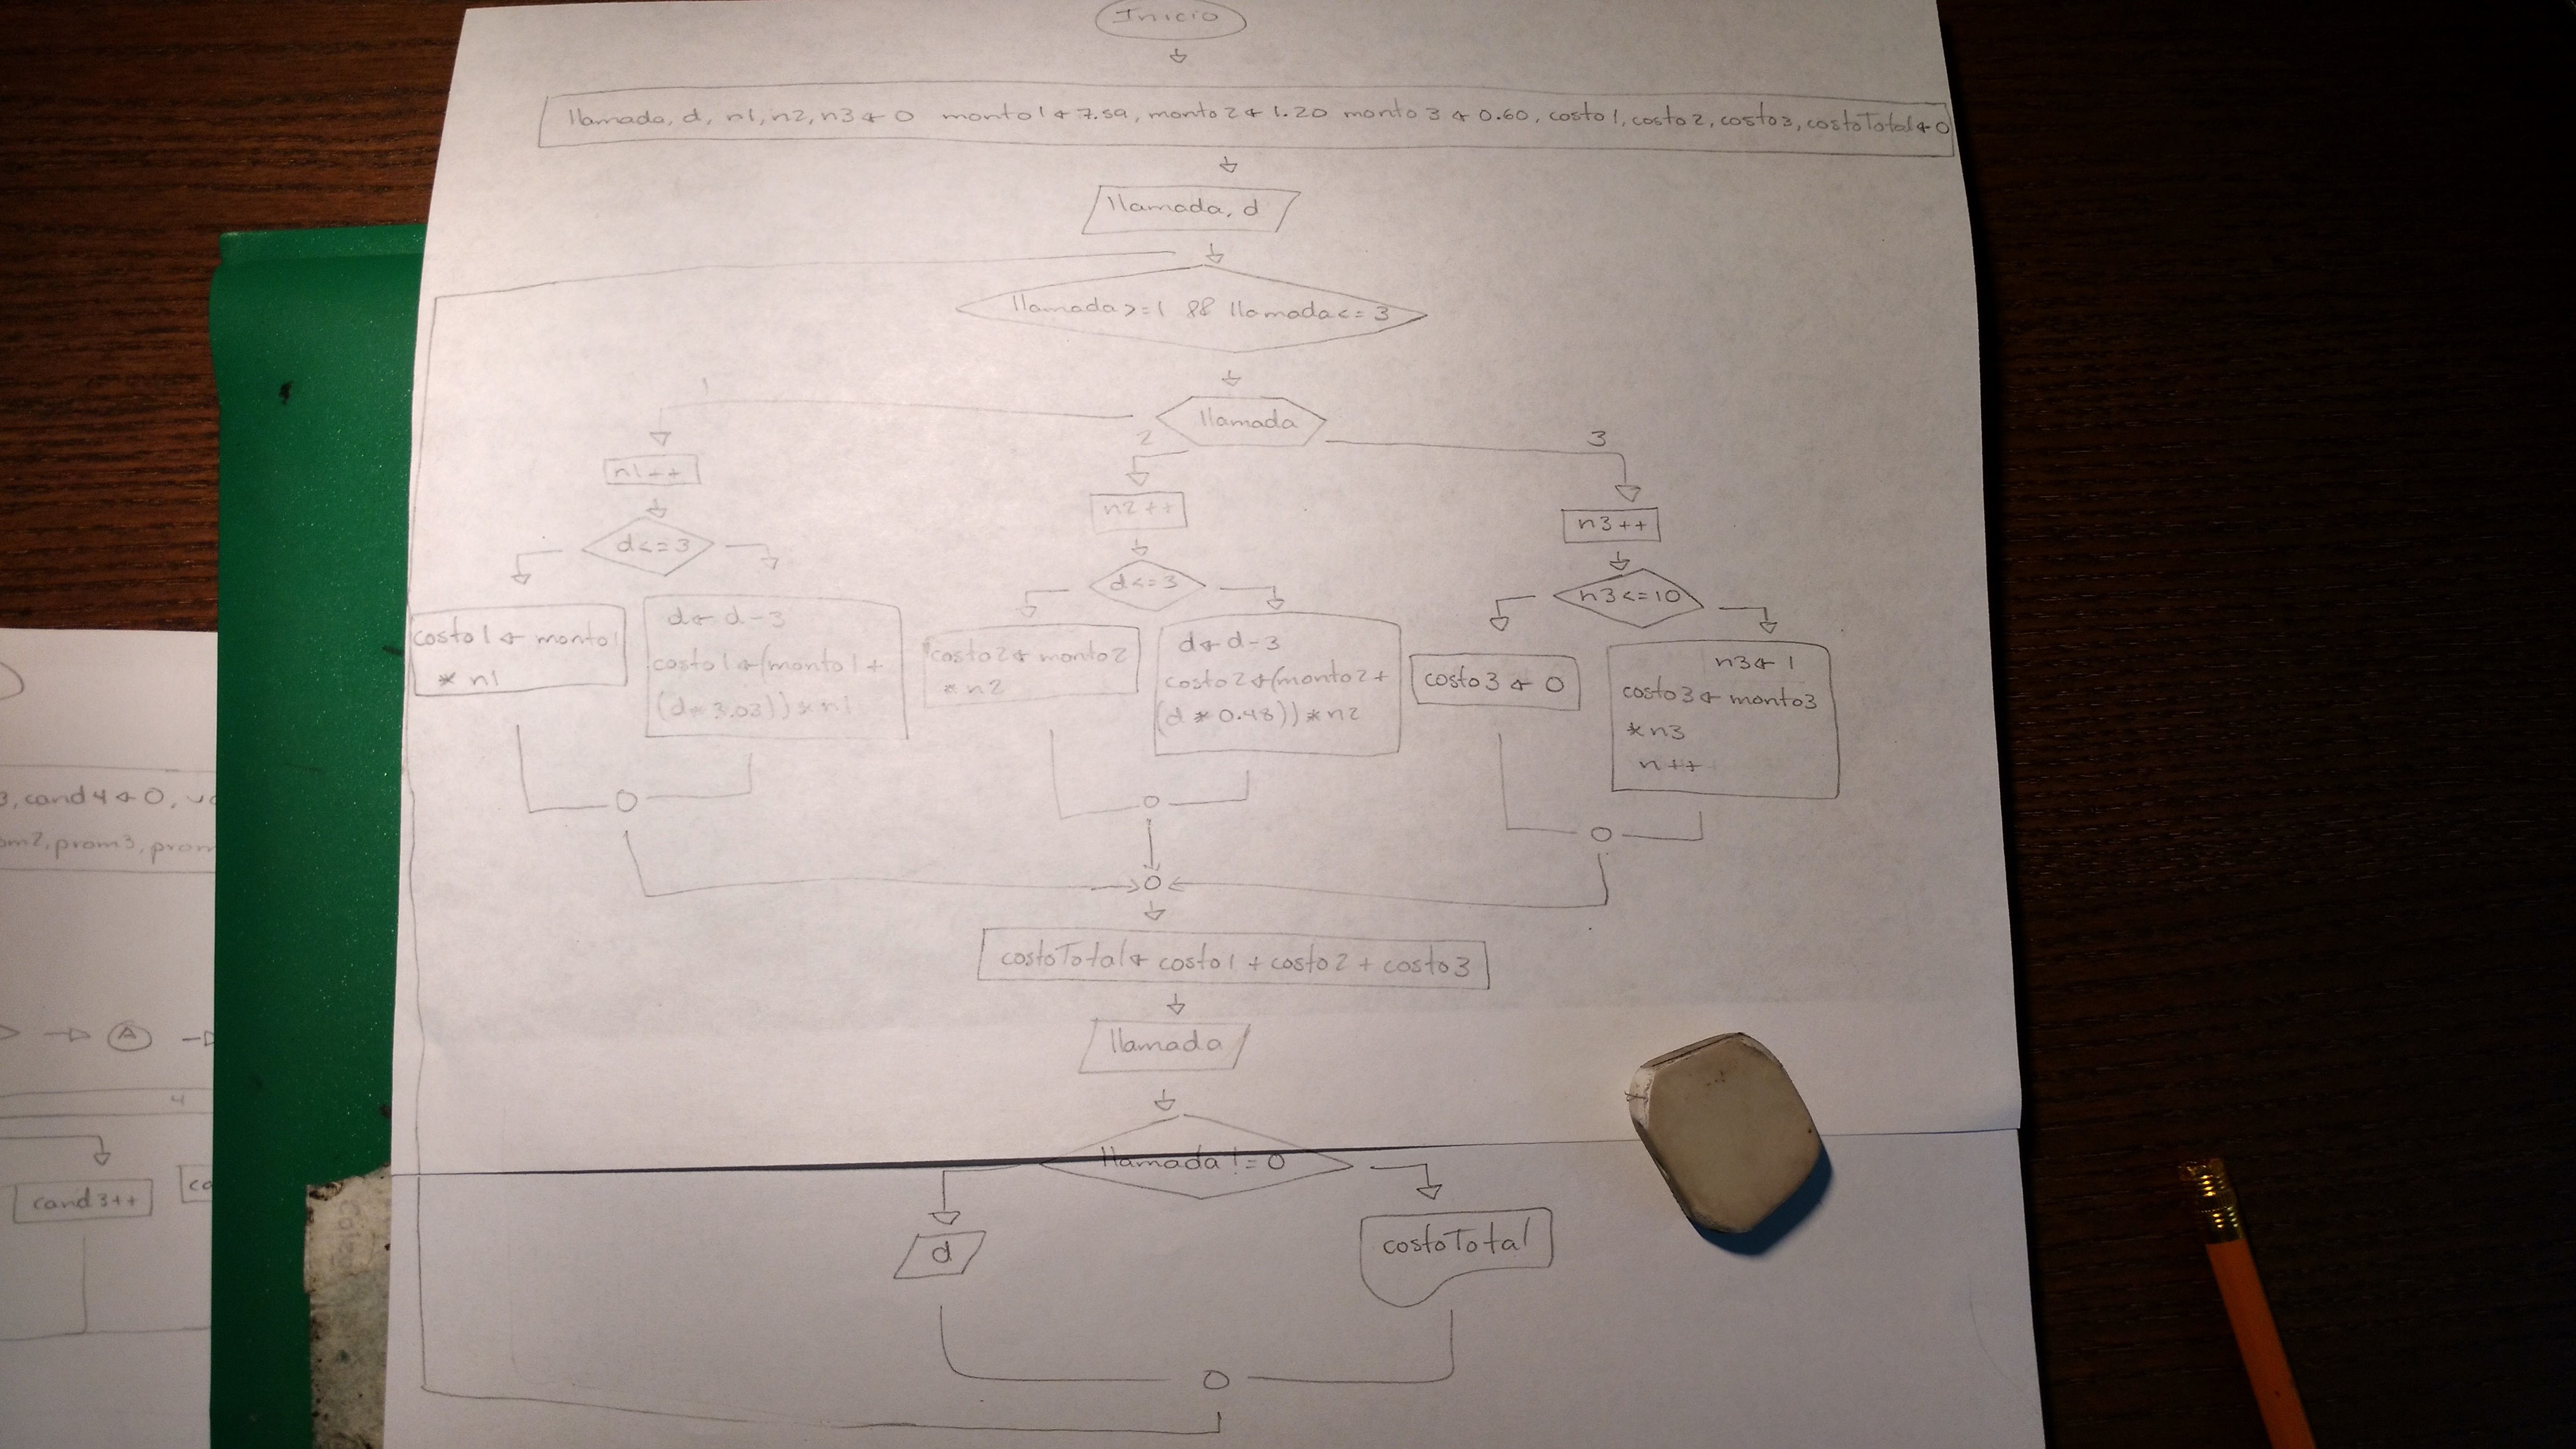 Inicio
llamada, d, n1, n2, n3 ← 0 monto1 ← 7.59, monto2 ← 1.20 monto3 ← 0.60, costo1, costo2, costo3, costoTotal ← 0
llamada, d
llamada>=1 && llamada<=3
llamada
1
2
3
n1++
n2++
n3++
d<=3
d<=3
n3<=10
costo1 ← monto1
* n1
d ← d-3
costo1 ← (monto1 +
(d * 3.03)) * n1
costo2 ← monto2
* n2
d ← d-3
costo2 ← (monto2 +
(d * 0.48)) * n2
costo3 ← 0
n3 ← 1
costo3 ← monto3
* n3
n++
costoTotal ← costo1 + costo2 + costo3
llamada
llamada != 0
d
costoTotal
3, cand4 ← 0,
prom3,
A
4
cand3++